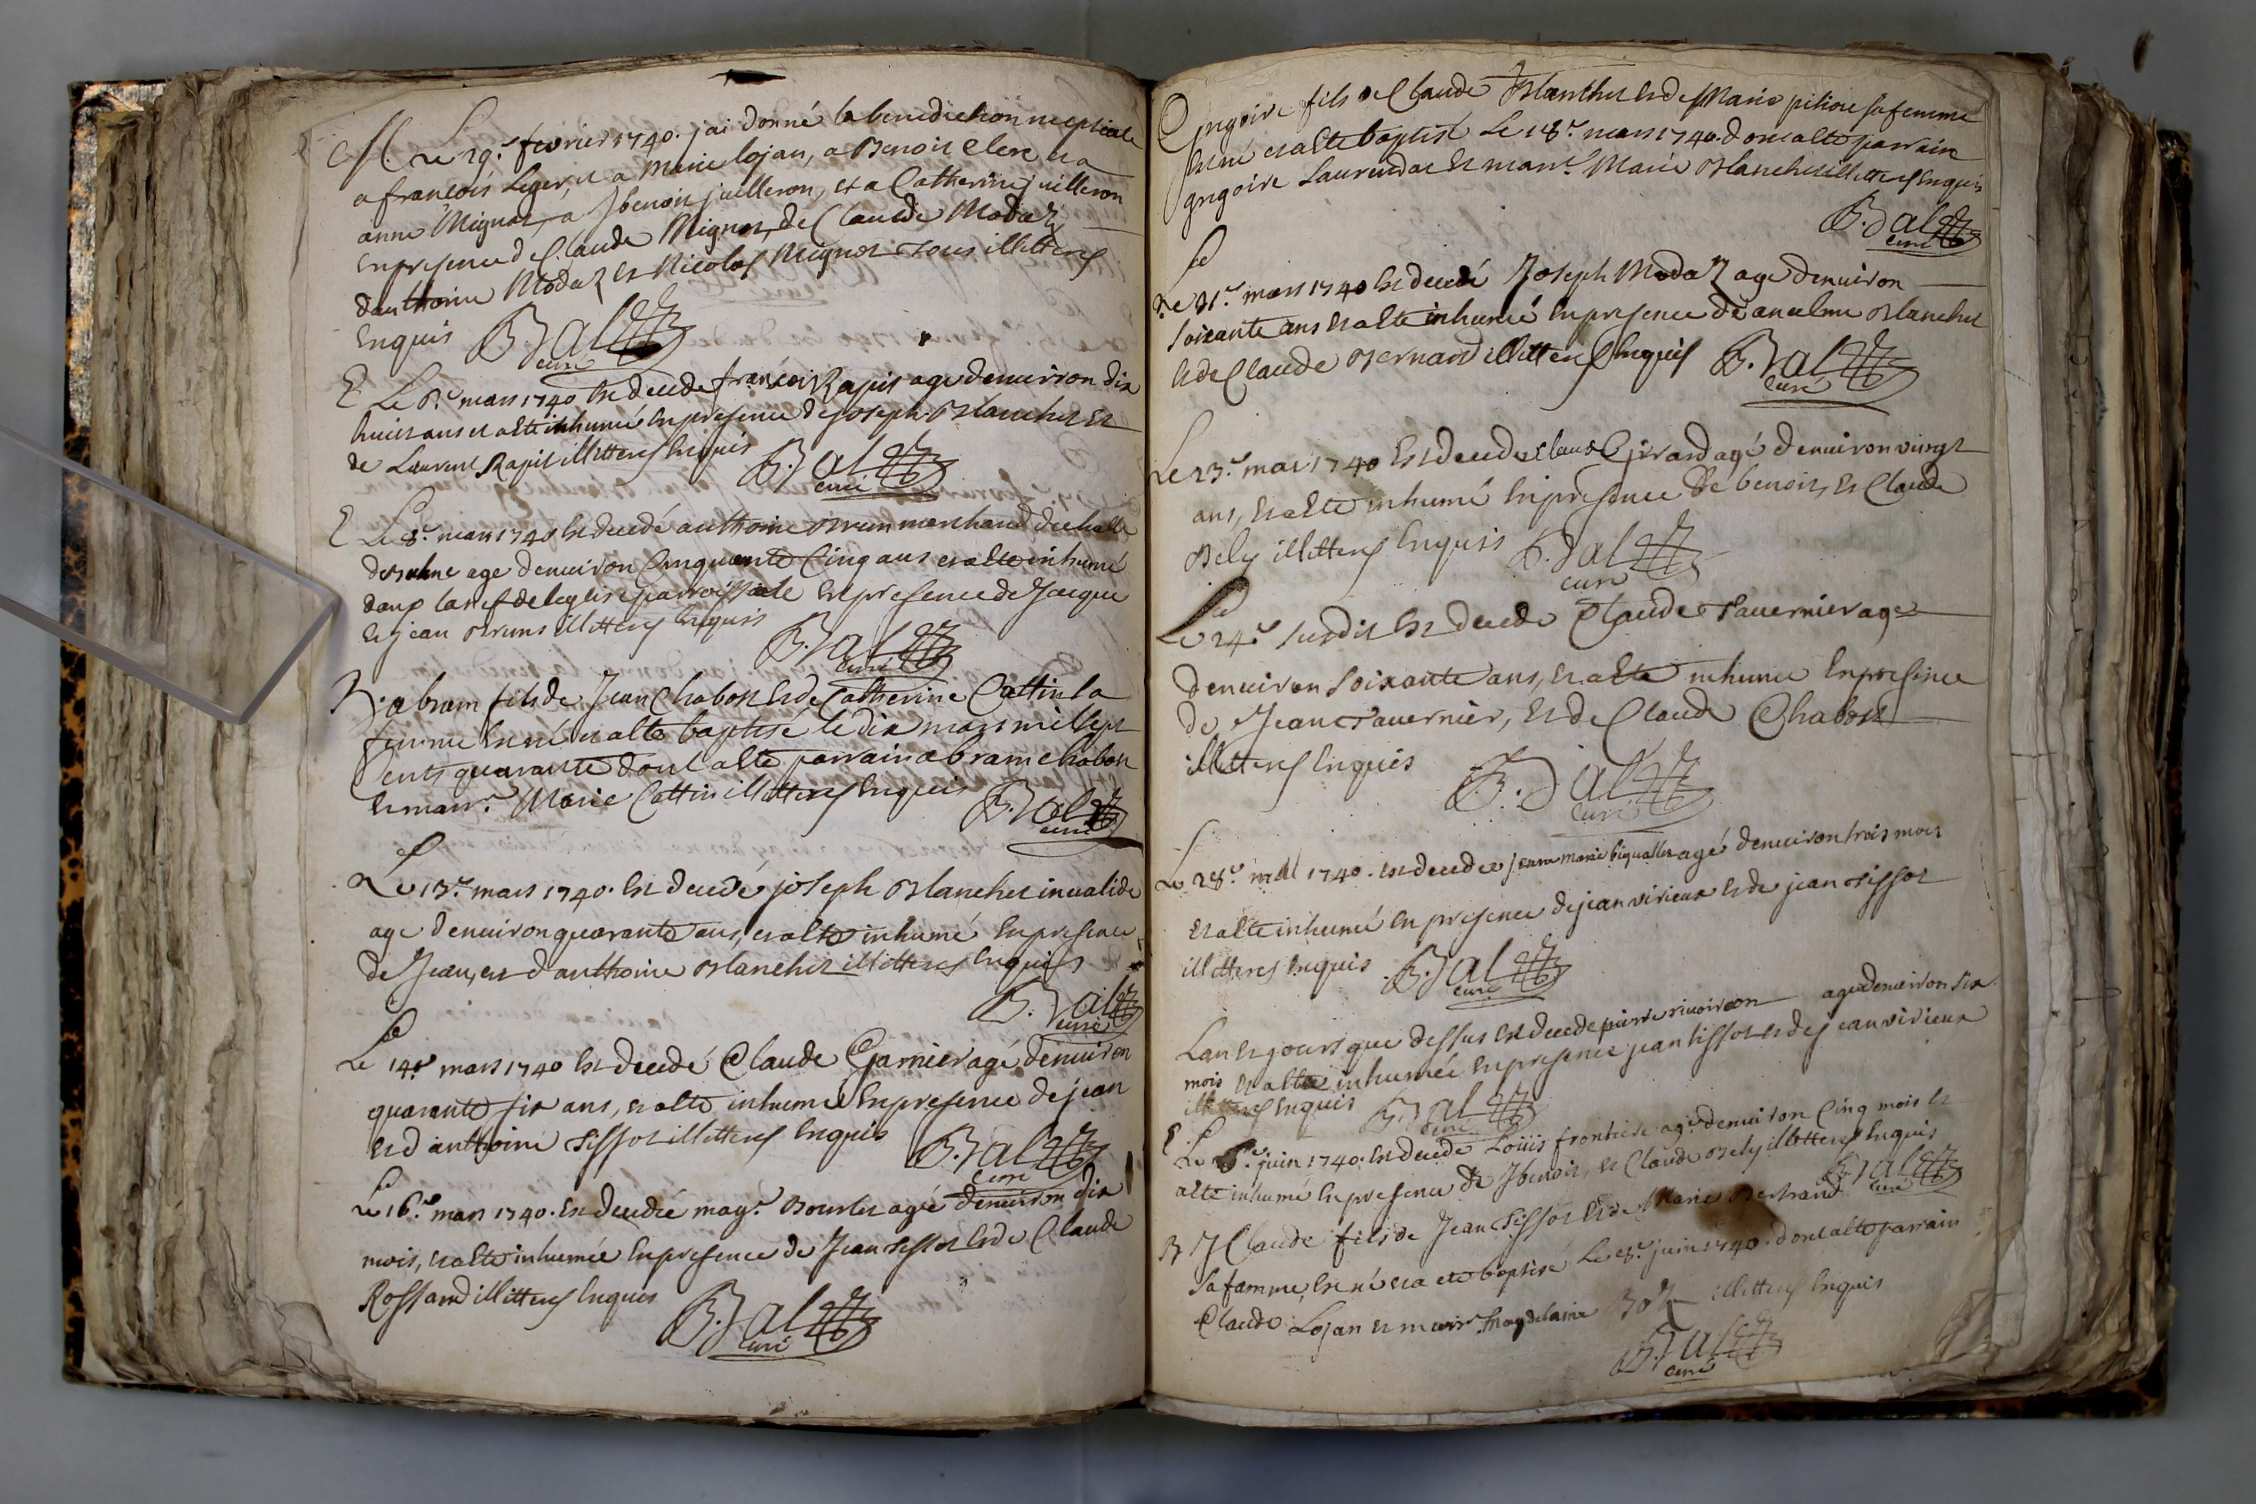 M. Le 29.e fevrier 1740. jai donné la benediction nuptiale
a francois Leger, et a Marie lojan, a Benoit Clere et a
anne Mignot, a Jbenoit juilleron, et a Catherine juilleron
en presence de Claude Mignot, de Claude Modaz
danthoine Modaz et Nicolas Mignot tous illitteres
enquis B. Bal curé
E Le 6.e mars 1740 est decede francois Rapit age denuiron dix
huict ans et a ete inhumé en presence de joseph Blanchet et
de Laurent Rapit illitteres enquis B. Bal curé
E Le 8.e mars 1740 est decedé anthoine Brun marchand
age denuiron Cinquante Cinq ans et a ete inhumé
dans la nef de leglise parroissiale en presence de Jacque
et jean Bruns illitteres enquis B. Bal curé
B. abram fils de Jean Chabost et de Catherine Cattin sa
femme est né et a ete baptisé le dix mars mil sept
cents quarante dont a ete parrain abram chabost
et marr.e Marie Cattin illitteres enquis B. Bal curé
Le 13.e mars 1740. est decedé joseph Blanchet inualide
age denuiron quarante ans, et a ete inhumé en presence
de Jean, et danthoine Blanchet illitteres enquis
B. Bal curé
Le 14.e mars 1740 est decedé Claude Garnier agé denuiron
quarante six ans, et a ete inhumé en presence de jean
et danthoine Tissot illitteres enquis B. Bal curé
Le 16.e mars 1740. est decedée mag.e Bourlet agé denuiron dix
mois, et a ete inhumée en presence de Jean Tissot et de Claude
Rossand illitteres enquis B. Bal curé
Gregoire fils de Claude Blanchet et de Marie pitiou sa femme
est né et a ete baptisé Le 18.e mars 1740. dont a ete parrain
gregoire Laurendat et marr.e Marie Blanchet illitteres enquis
B. Bal curé
Le 21.e mars 1740 est decedé Joseph Modaz age denuiron
soixante ans et a ete inhumé en presence de ancelme Blanchet
et de Claude Bernard illitteres enquis B. Bal curé
Le 23.e mai 1740 est decede Claude Girard agé denuiron vingt
ans, et a ete inhumé en presence de benoit, et Claude
Bely illitteres enquis B. Bal curé
Le 24.e susdit est decede Claude Tauernier age
denuiron soixante ans, et a ete inhumé en presence
de Jean Tauernier, et de Claude Chabost
illitteres enquis B. Bal curé
Le 28.e mai 1740. est decedee jeanne marie biquallet agé denuiron trois mois
et a ete inhumé en presence de jean virieux et de jean Tissot
illitteres enquis B. Bal curé
Lan et jours que dessus est decede pierre riuoireon age denuiron six
mois et a ete inhumée en presence jean tissot et de jean virieux
illitteres enquis B. Bal curé
E Le 6.e juin 1740. est decede Louis frontiere agé denuiron Cinq mois et
a ete inhumé en presence de Jbenoit, et Claude Bely illitteres enquis
B. Bal curé
B J Claude fils de Jean Tissot et de Marie Bertrand
sa famme, est né et a ete baptisé Le 8.e juin 1740. dont a ete parrain
Claude Lojan et marr.e Magdelaine Boz illitteres enquis
B. Bal curé